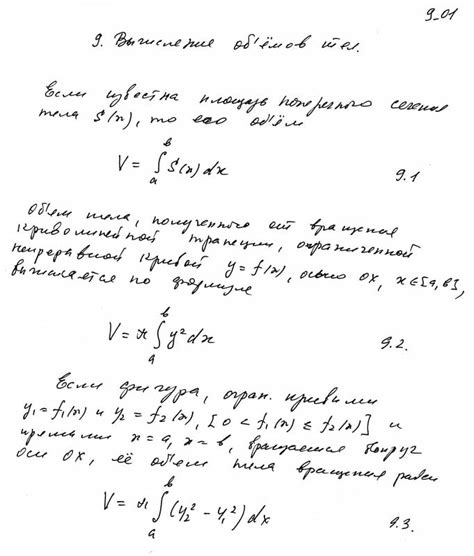 9_01
9. Вычисление объёмов тел.
Если известна площадь поперечного сечения
тела S(x), то его объём
V = ∫ₐᵇ S(x) dx 9.1
Объем тела, полученного от вращения
криволинейной трапеции, ограниченной
непрерывной кривой y = f(x), осью ox, x ∈ [a, b],
вычисляется по формуле
V = π ∫ₐᵇ y² dx 9.2.
Если фигура, огран. кривыми
y₁ = f₁(x) и y₂ = f₂(x), [0 < f₁(x) ≤ f₂(x)] и
прямыми x = a, x = b, вращается вокруг
оси ox, её объем тела вращения равен
V = π ∫ₐᵇ (y₂² − y₁²) dx 9.3